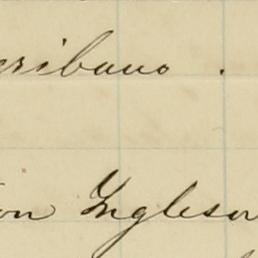 cribano .
on Ingleson